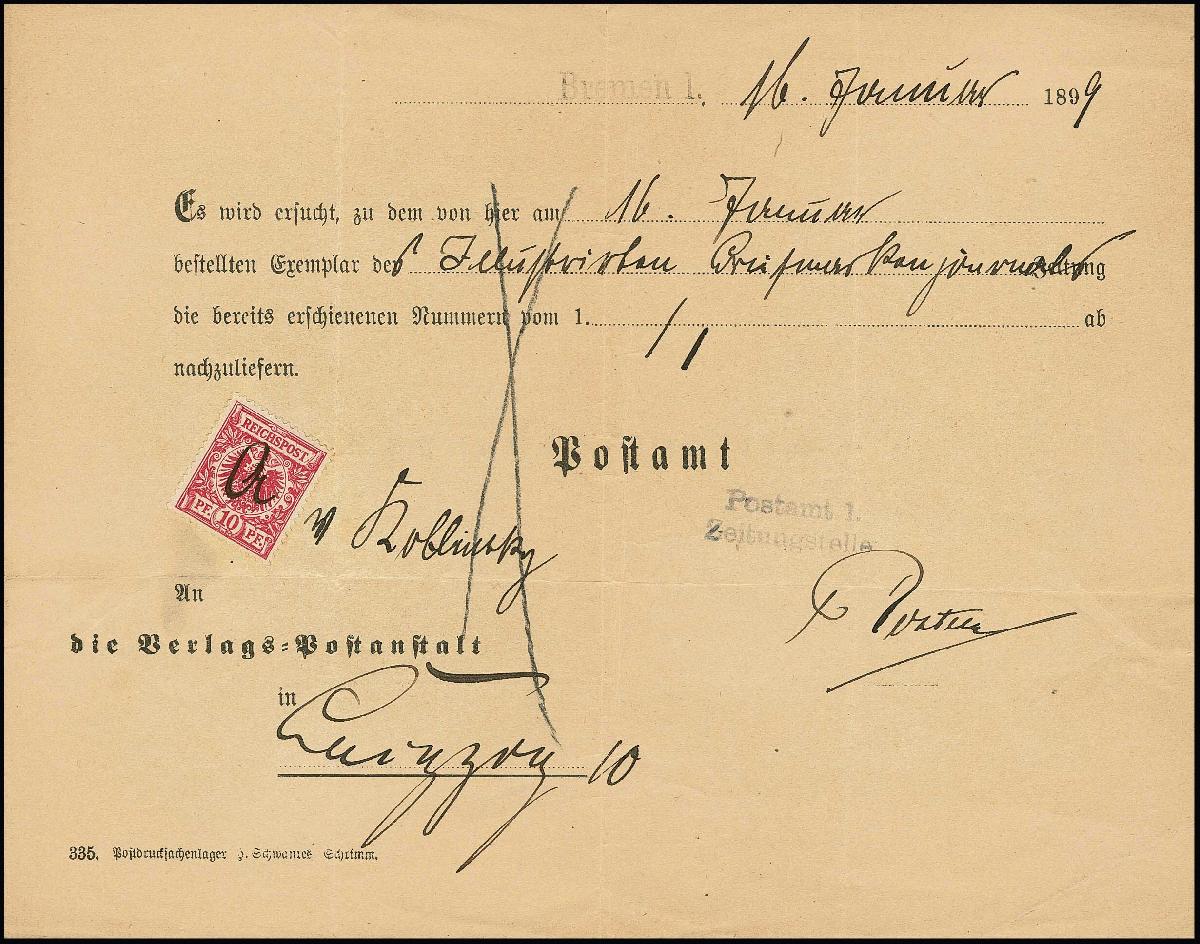 Bremen 1. 16. Januar 1899
Es wird ersucht, zu dem von hier am 16. Januar
bestellten Exemplar des Illustrirten Briefmarkenjournals Zeitung
die bereits erschienenen Nummern vom 1. / 1 ab
nachzuliefern.
REICHSPOST
PF. 10 PF.
Postamt
Postamt 1.
Zeitungstelle
v Koblinsky
An
die Verlags-Postanstalt
in
Leipzig 10
335. Postdrucksachenlager H. Schwantes Schrimm.